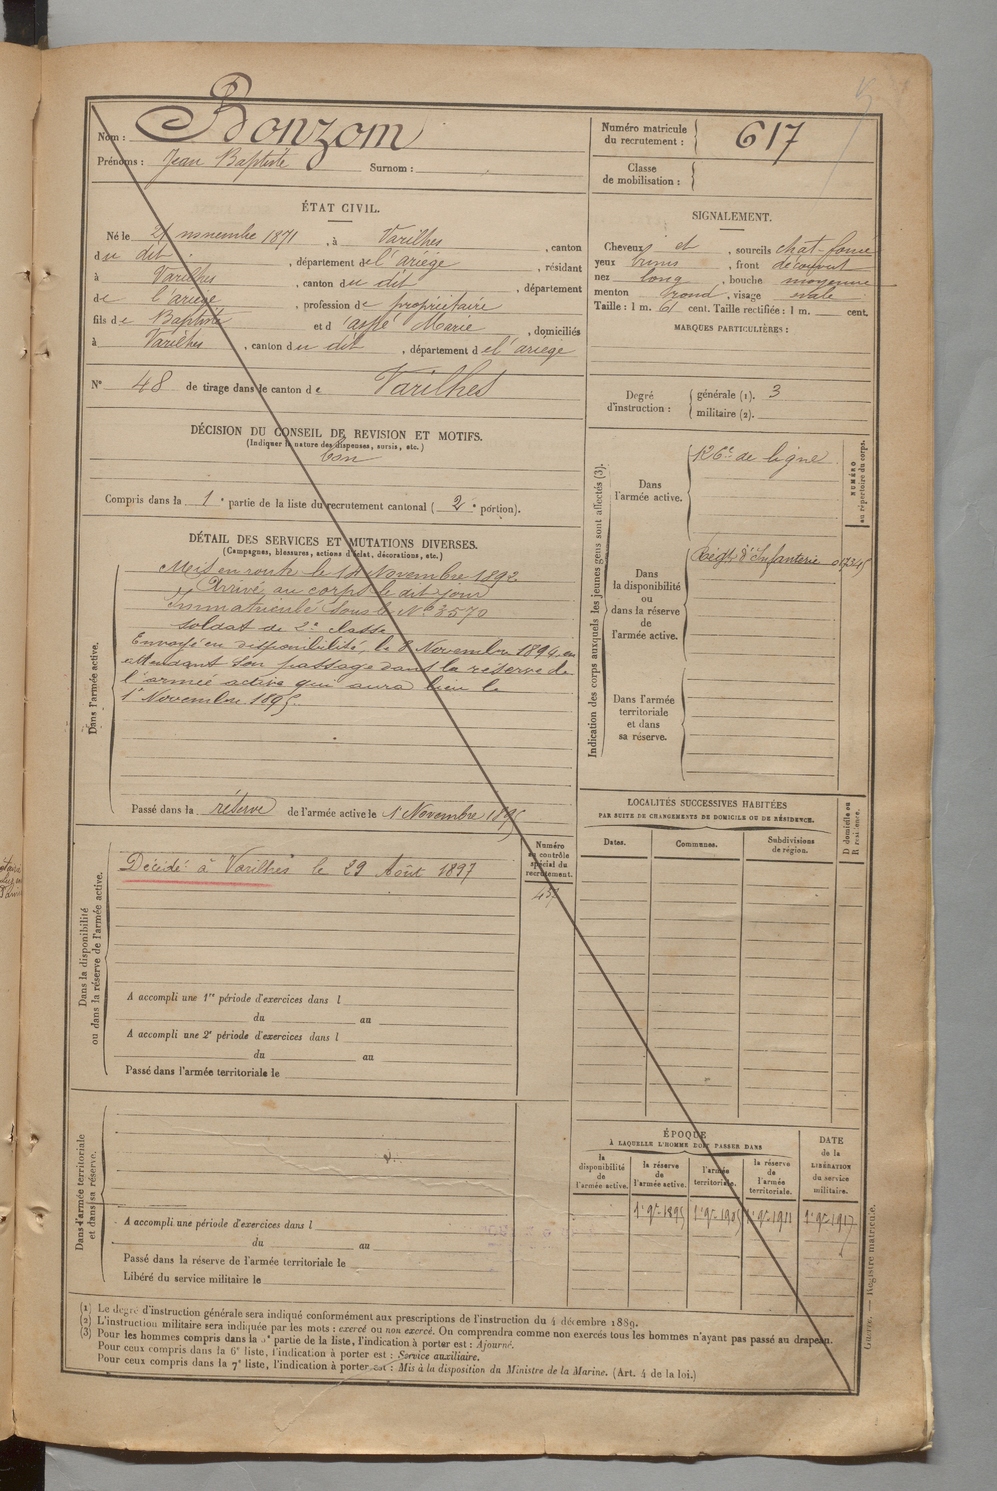 Nom : Bonzom
Prénoms : Jean Baptiste Surnom :
Numéro matricule du recrutement : 617
Classe de mobilisation :
ÉTAT CIVIL.
Né le novembre 1871, à Varilhes, canton
du dit, département de l'ariège, résidant
à Varilhes, canton du dit, département
de l'ariège, profession de propriétaire
fils de Baptiste et d Marie, domiciliés
à Varilhes, canton du dit, département de l'ariège
N° 48 de tirage dans le canton de Varilhes
SIGNALEMENT.
Cheveux et, sourcils chat-foncé
yeux bruns, front découvert
nez long, bouche moyenne
menton rond, visage ovale
Taille : 1 m. 61 cent. Taille rectifiée : 1 m. cent.
MARQUES PARTICULIÈRES :
Degré d'instruction : générale (1). 3
militaire (2).
DÉCISION DU CONSEIL DE REVISION ET MOTIFS.
(Indiquer la nature des dispenses, sursis, etc.)
bon
Compris dans la 1e partie de la liste du recrutement cantonal ( 2e portion).
DÉTAIL DES SERVICES ET MUTATIONS DIVERSES.
(Campagnes, blessures, actions d'éclat, décorations, etc.)
Dans l'armée active.
Mis en route le 14 Novembre 1892
Arrivé au corps le dit jour
Immatriculé sous le N° 3570
soldat de 2e classe
Envoyé en disponibilité le 8 Novembre 1894 en
attendant son passage dans la réserve de
l'armée active qui aura lieu le
1er Novembre 1895.
Passé dans la réserve de l'armée active le 1er Novembre 1895
Indication des corps auxquels les jeunes gens sont affectés (3).
Dans l'armée active.
126e de ligne
NUMÉRO au répertoire du corps.
Dans la disponibilité ou dans la réserve de l'armée active.
Régt d'Infanterie
Dans l'armée territoriale et dans sa réserve.
LOCALITÉS SUCCESSIVES HABITÉES
PAR SUITE DE CHANGEMENTS DE DOMICILE OU DE RÉSIDENCE.
Dates.
Communes.
Subdivisions de région.
D domicile ou R résidence.
Dans la disponibilité ou dans la réserve de l'armée active.
Numéro au contrôle spécial du recrutement.
Décédé à Varilhes le 29 Août 1897
A accompli une 1re période d'exercices dans l
du au
A accompli une 2e période d'exercices dans l
du au
Passé dans l'armée territoriale le
Dans l'armée territoriale et dans sa réserve.
A accompli une période d'exercices dans l
du au
Passé dans la réserve de l'armée territoriale le
Libéré du service militaire le
ÉPOQUE
À LAQUELLE L'HOMME DOIT PASSER DANS
la disponibilité de l'armée active.
la réserve de l'armée active.
l'armée territoriale.
la réserve de l'armée territoriale.
DATE de la LIBÉRATION du service militaire.
1er 9e 1895
1er 9e 1905
1er 9e 1911
1er 9e 1917
(1) Le degré d'instruction générale sera indiqué conformément aux prescriptions de l'instruction du 4 décembre 1889.
(2) L'instruction militaire sera indiquée par les mots : exercé ou non exercé. On comprendra comme non exercés tous les hommes n'ayant pas passé au drapeau.
(3) Pour les hommes compris dans la 5e partie de la liste, l'indication à porter est : Ajourné.
Pour ceux compris dans la 6e liste, l'indication à porter est : Service auxiliaire.
Pour ceux compris dans la 7e liste, l'indication à porter est : Mis à la disposition du Ministre de la Marine. (Art. 4 de la loi.)
Guerre. — Registre matricule.